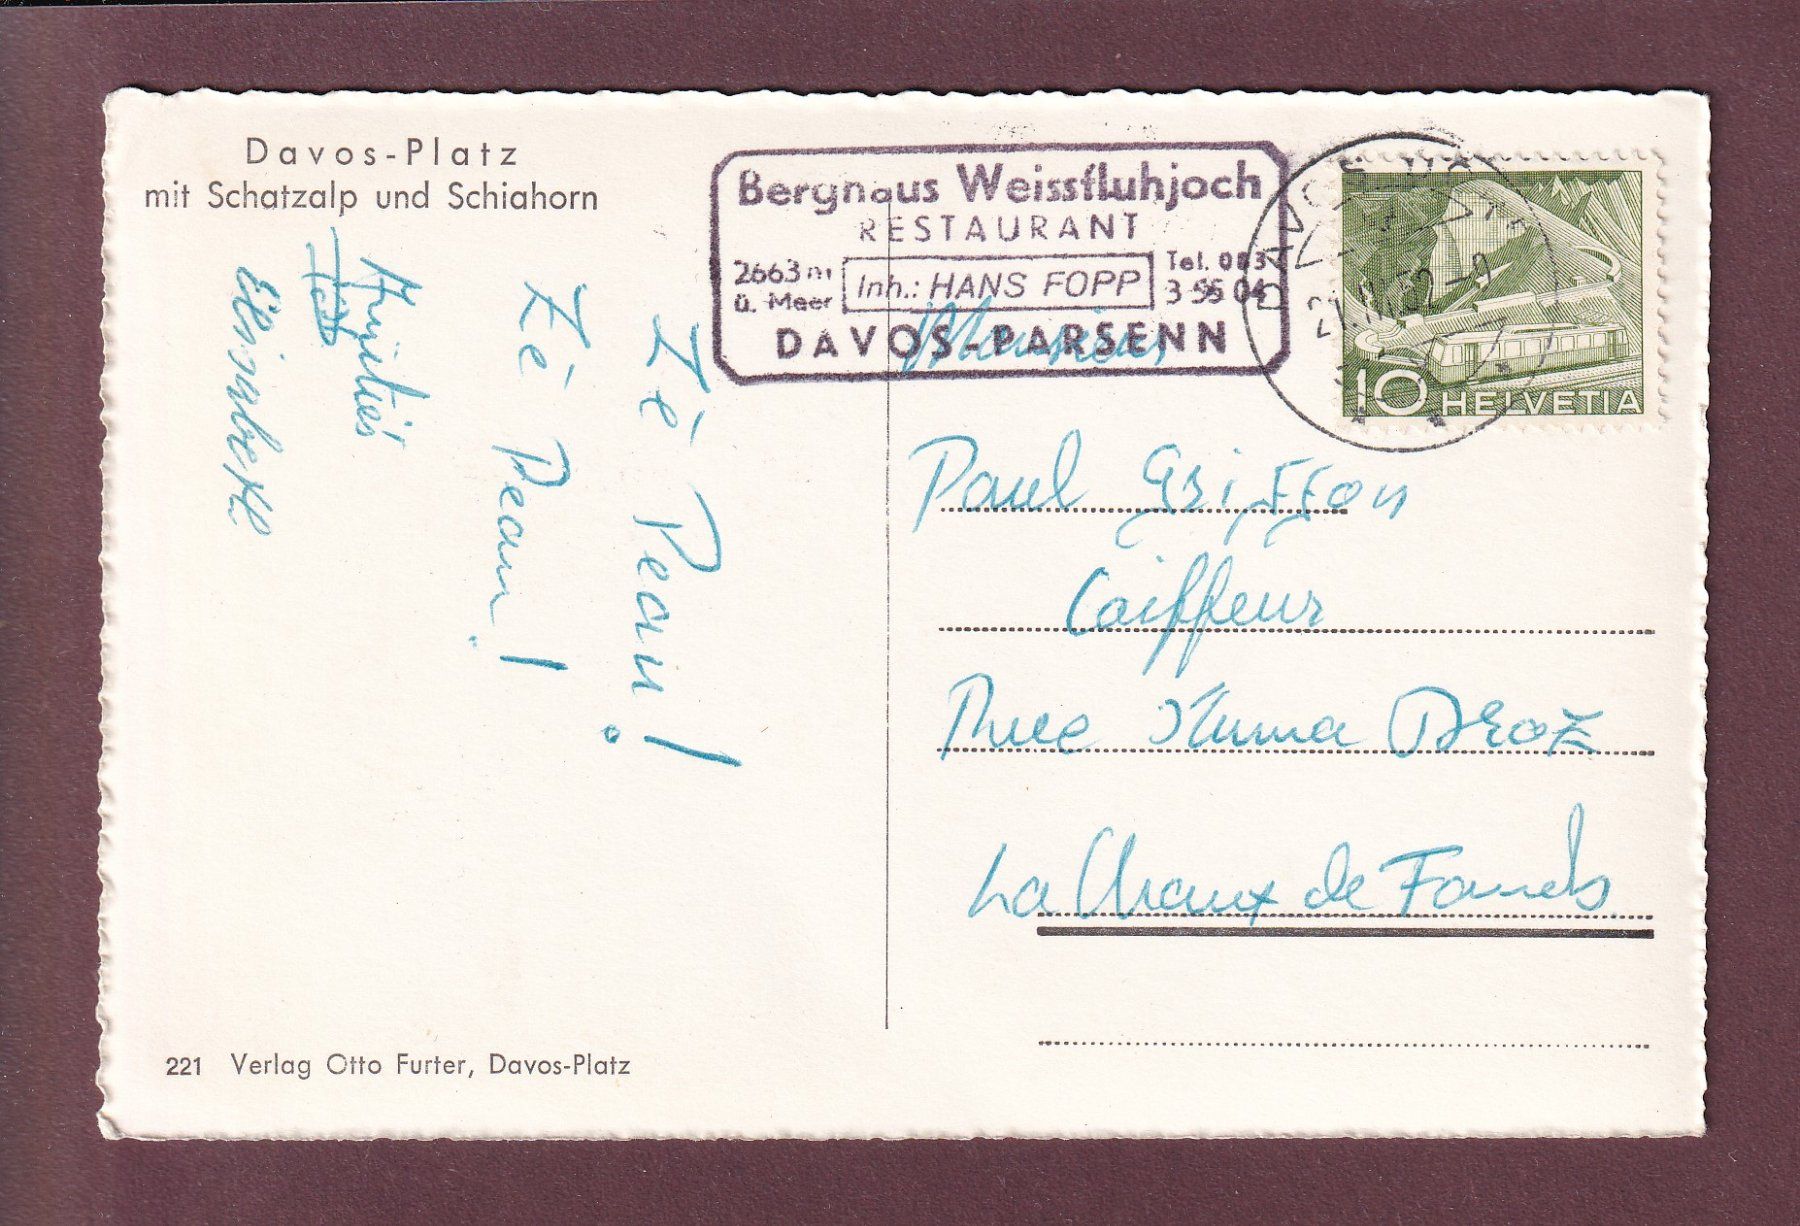 Davos-Platz
mit Schatzalp und Schiahorn
Zé Peau!
Zé Peau!
Amitiés
221 Verlag Otto Furter, Davos-Platz
Berghaus Weissfluhjoch
RESTAURANT
2663 m
ü. Meer
Inh.: HANS FOPP
Tel. 083
3 55 04
DAVOS-PARSENN
DAVOS
21.III.52-9
10 HELVETIA
Monsieur
Paul Griffon
Coiffeur
Rue Numa Droz
La Chaux de Fonds